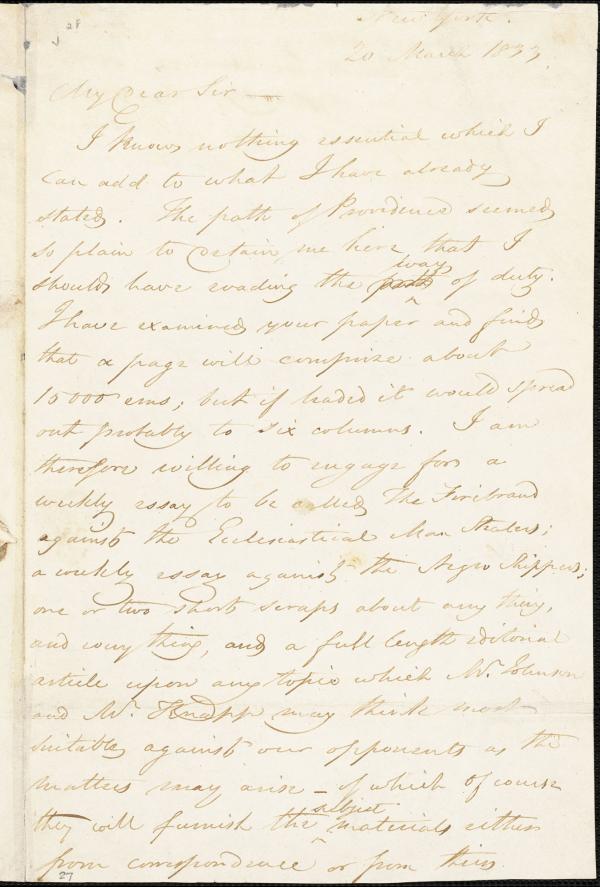 28
New York.
20 March 1833.
My Dear Sir —
I know nothing essential which I
can add to what I have already
stated. The path of Providence seemed
so plain to detain me here that I
should have evading the way of duty.
I have examined your paper and find
that a page will comprize about
15000 ems; but if leaded it would spread
out probably to six columns. I am
therefore willing to engage for a
weekly essay to be called The Firebrand
against the Ecclesiastical Man Stealers;
a weekly essay against the Negro Shippers;
one or two short scraps about any thing,
and every thing, and a full length editorial
article upon any topic which Mr. Johnson
and Mr. Knapp may think most
suitable against our opponents as the
matters may arise — of which of course
they will furnish the subject materials either
from correspondence or from their
27